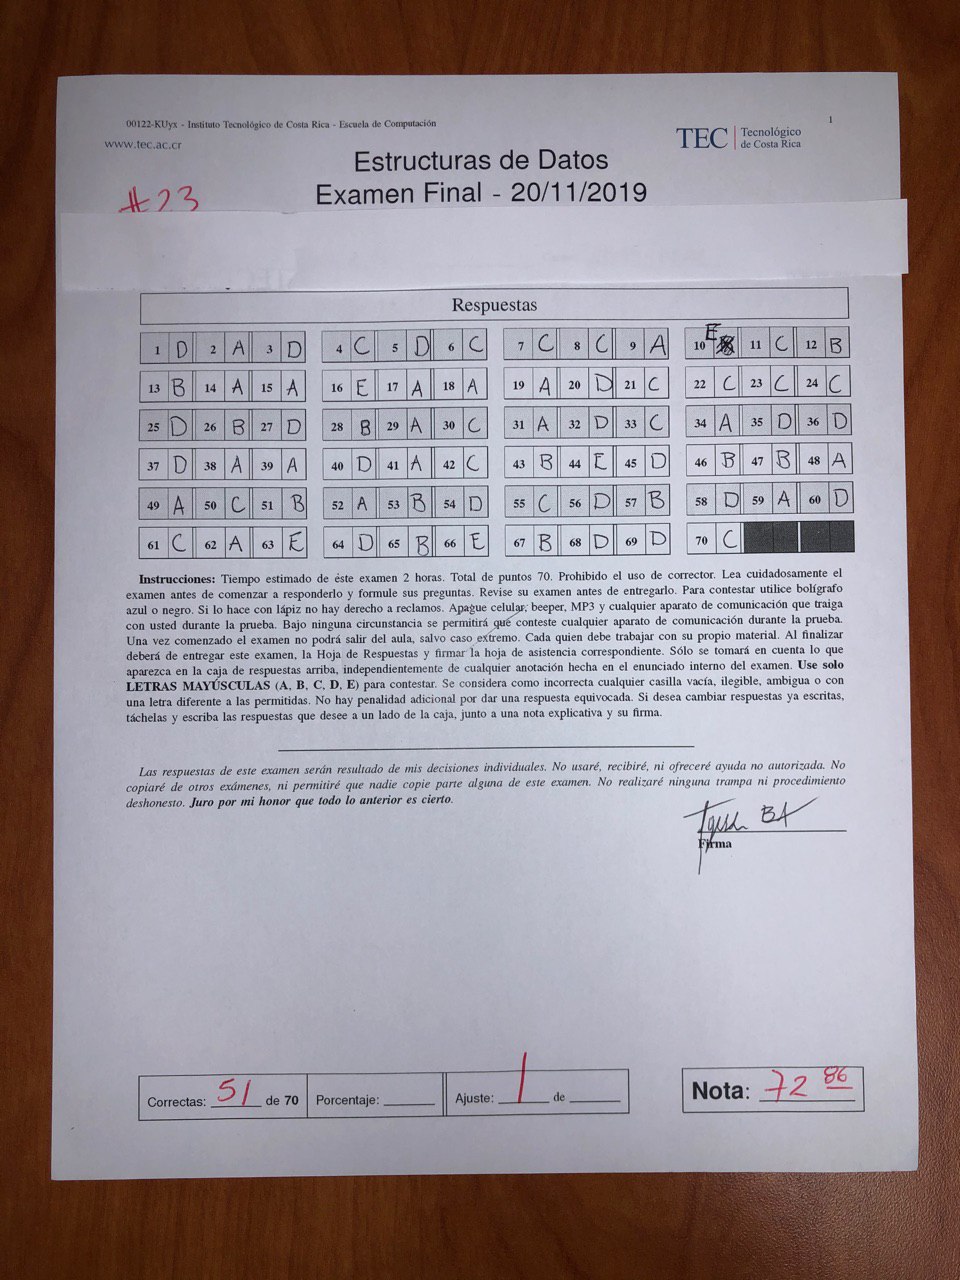 00122-KUyx - Instituto Tecnológico de Costa Rica - Escuela de Computación
1
www.tec.ac.cr
TEC | Tecnológico
de Costa Rica
Estructuras de Datos
Examen Final - 20/11/2019
#23
Respuestas
1 D 2 A 3 D 4 C 5 D 6 C 7 C 8 C 9 A 10 E 11 C 12 B
13 B 14 A 15 A 16 E 17 A 18 A 19 A 20 D 21 C 22 C 23 C 24 C
25 D 26 B 27 D 28 B 29 A 30 C 31 A 32 D 33 C 34 A 35 D 36 D
37 D 38 A 39 A 40 D 41 A 42 C 43 B 44 E 45 D 46 B 47 B 48 A
49 A 50 C 51 B 52 A 53 B 54 D 55 C 56 D 57 B 58 D 59 A 60 D
61 C 62 A 63 E 64 D 65 B 66 E 67 B 68 D 69 D 70 C
Instrucciones: Tiempo estimado de éste examen 2 horas. Total de puntos 70. Prohibido el uso de corrector. Lea cuidadosamente el
examen antes de comenzar a responderlo y formule sus preguntas. Revise su examen antes de entregarlo. Para contestar utilice bolígrafo
azul o negro. Si lo hace con lápiz no hay derecho a reclamos. Apague celular, beeper, MP3 y cualquier aparato de comunicación que traiga
con usted durante la prueba. Bajo ninguna circunstancia se permitirá que conteste cualquier aparato de comunicación durante la prueba.
Una vez comenzado el examen no podrá salir del aula, salvo caso extremo. Cada quien debe trabajar con su propio material. Al finalizar
deberá de entregar este examen, la Hoja de Respuestas y firmar la hoja de asistencia correspondiente. Sólo se tomará en cuenta lo que
aparezca en la caja de respuestas arriba, independientemente de cualquier anotación hecha en el enunciado interno del examen. Use solo
LETRAS MAYÚSCULAS (A, B, C, D, E) para contestar. Se considera como incorrecta cualquier casilla vacía, ilegible, ambigua o con
una letra diferente a las permitidas. No hay penalidad adicional por dar una respuesta equivocada. Si desea cambiar respuestas ya escritas,
táchelas y escriba las respuestas que desee a un lado de la caja, junto a una nota explicativa y su firma.
Las respuestas de este examen serán resultado de mis decisiones individuales. No usaré, recibiré, ni ofreceré ayuda no autorizada. No
copiaré de otros exámenes, ni permitiré que nadie copie parte alguna de este examen. No realizaré ninguna trampa ni procedimiento
deshonesto. Juro por mi honor que todo lo anterior es cierto.
Firma
Correctas: 51 de 70 Porcentaje: Ajuste: de Nota: 72 86